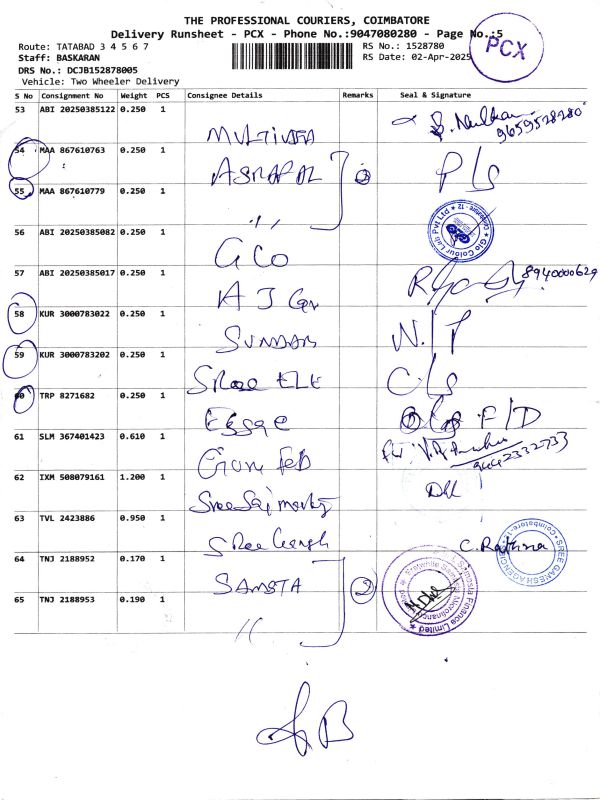 THE PROFESSIONAL COURIERS, COIMBATORE
Delivery Runsheet - PCX - Phone No.:9047080280 - Page No.:5
Route: TATABAD 3 4 5 6 7
RS No.: 1528780
Staff: BASKARAN
RS Date: 02-Apr-2025
PCX
DRS No.: DCJB152878005
Vehicle: Two Wheeler Delivery
S No Consignment No Weight PCS Consignee Details Remarks Seal & Signature
53 ABI 20250385122 0.250 1
9659528280
54 MAA 867610763 0.250 1
55 MAA 867610779 0.250 1
56 ABI 20250385082 0.250 1
GCO
Glo Colour Lab Pvt Ltd
57 ABI 20250385017 0.250 1
8940000629
58 KUR 3000783022 0.250 1
SUNDAR
59 KUR 3000783202 0.250 1
Sree ELE
C/S
60 TRP 8271682 0.250 1
Essae
F/D
61 SLM 367401423 0.610 1
9442332733
62 IXM 508079161 1.200 1
Sree Sai
63 TVL 2423886 0.950 1
Sree Ganesh
C. Rathna
SREE GANESH AGENCIES
64 TNJ 2188952 0.170 1
SAMSTA
2
Samasta Microfinance Limited
65 TNJ 2188953 0.190 1